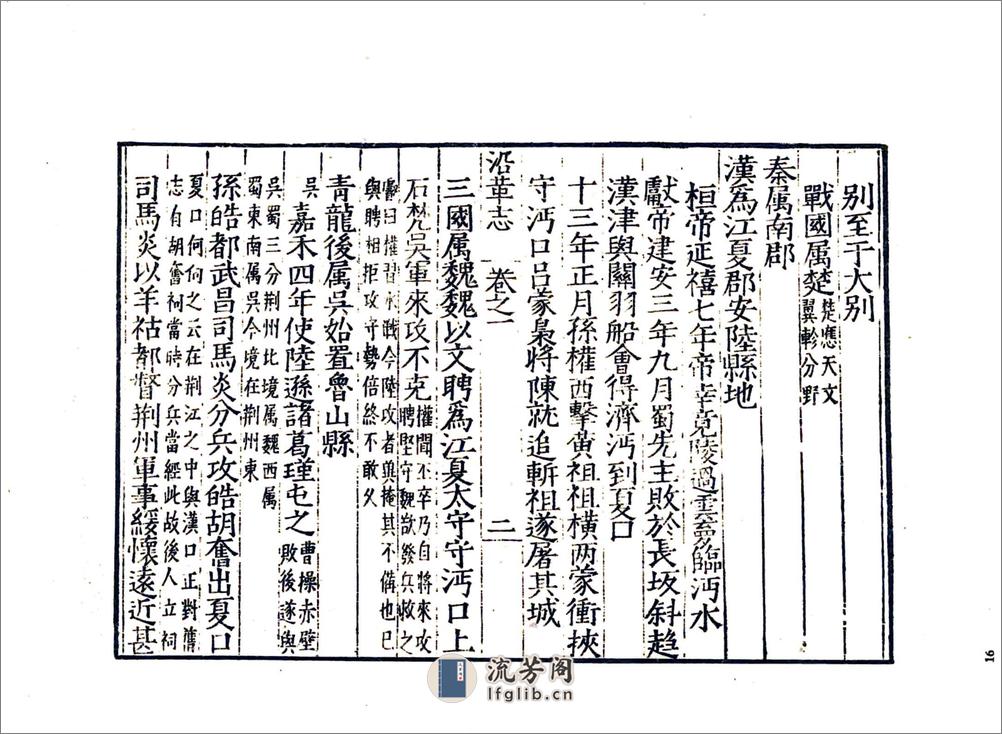 别至于大别
戰國属楚楚應天文
翼軫分野
秦属南郡
漢為江夏郡安陸縣地
桓帝延禧七年帝幸竟陵過雲夢臨沔水
獻帝建安三年九月蜀先主敗於長坂斜趋
漢津與關羽船會得濟沔到夏口
十三年正月孫權西擊黃祖祖横两蒙衝挾
守沔口吕蒙梟將陳就追斬祖遂屠其城
沿革志 卷之一 二
三國属魏魏以文聘為江夏太守守沔口上
石梵吴軍來攻不克權聞丕卒乃自將來攻
聘堅守魏欲發兵救之
叡曰權習水戰今陸攻者兾掩其不偹也已
與聘相拒攻守勢倍終不敢久
青龍後属吴始置魯山縣
吴嘉禾四年使陸遜諸葛瑾屯之曹操赤壁
敗後遂與
吴蜀三分荆州比境属魏西属
蜀東南属吴今境在荆州東
孫皓都武昌司馬炎分兵攻皓胡奮出夏口
夏口何尚之云在荆江之中與漢口正對舊
志有胡奮祠當時分兵當經此故後人立祠
司馬炎以羊祜都督荆州軍事綏懷遠近甚
16
流芳阁
lfglib.cn